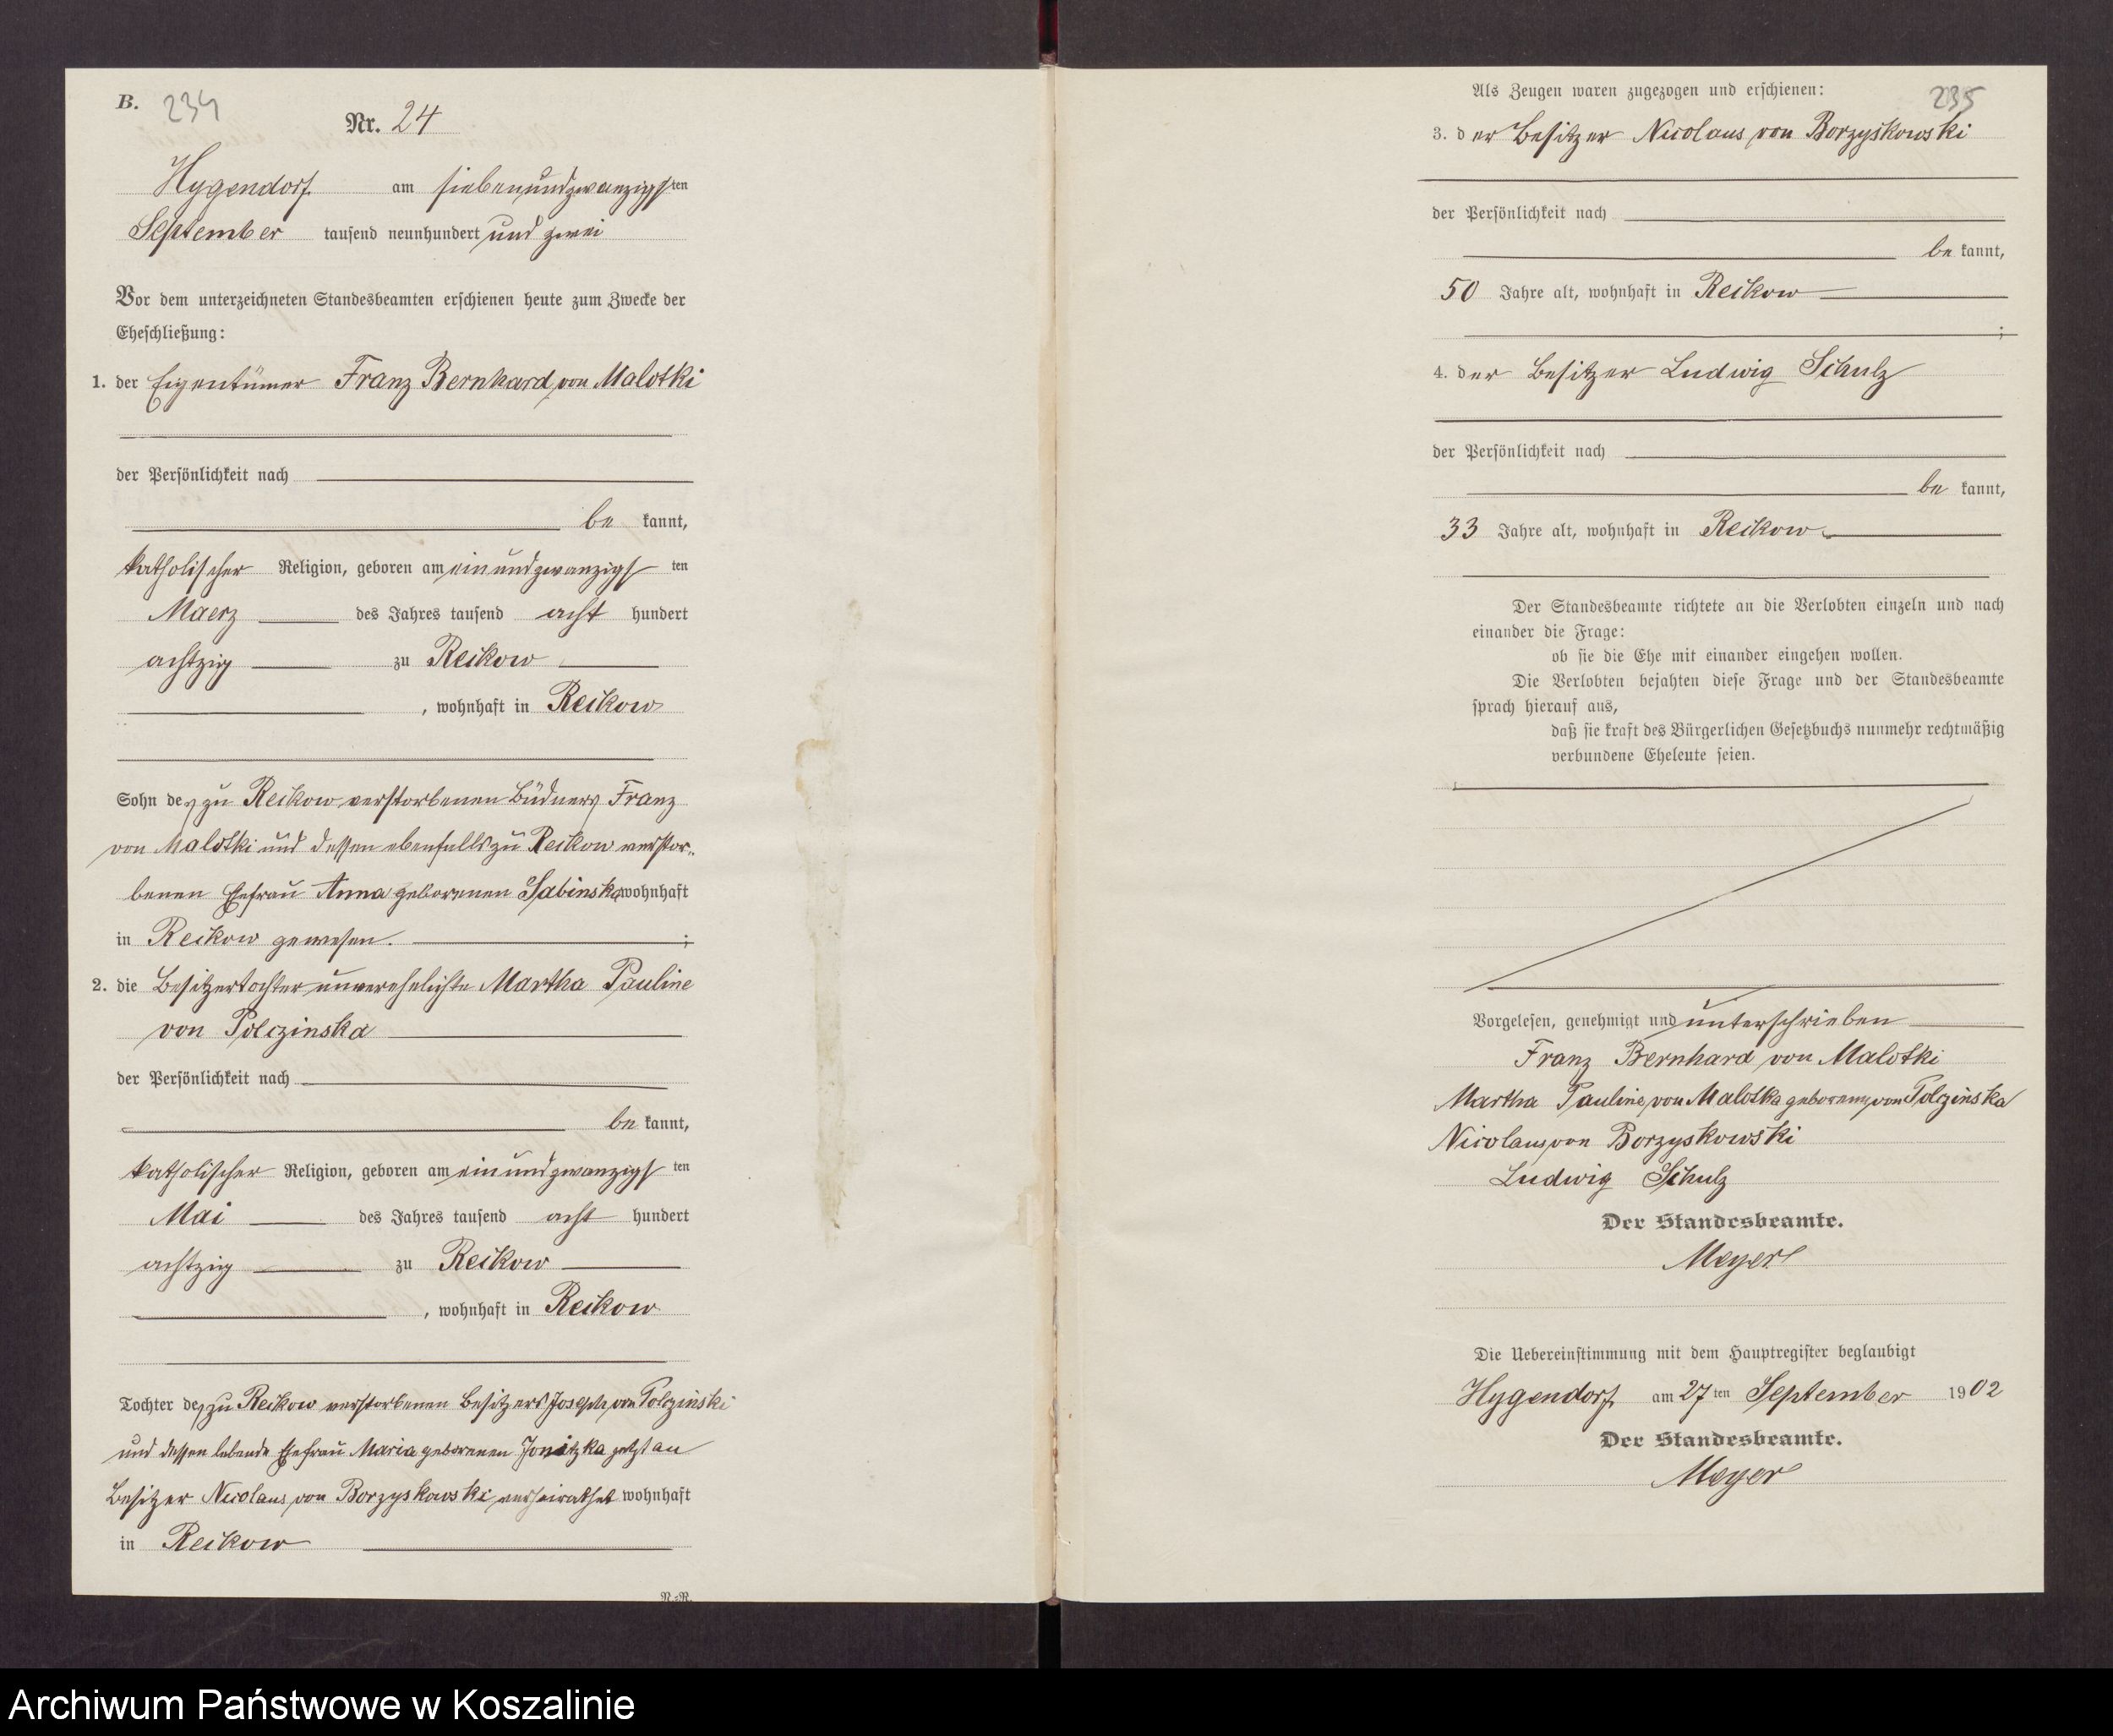 B. 234
Nr. 24
Hygendorf am siebenundzwanzigsten
September tausend neunhundert und zwei
Vor dem unterzeichneten Standesbeamten erschienen heute zum Zwecke der
Eheschließung:
1. der Eigentümer Franz Bernhard von Malotki
der Persönlichkeit nach
be kannt,
katholischer Religion, geboren am einundzwanzigsten
Maerz des Jahres tausend acht hundert
achtzig zu Reckow
, wohnhaft in Reckow
Sohn des zu Reckow verstorbenen Büdners Franz
von Malotki und dessen ebenfalls zu Reckow verstor-
benen Ehefrau Anna geborenen Sabinska wohnhaft
in Reckow gewesen. ;
2. die Besitzertochter unverehelichte Martha Pauline
von Polczinska
der Persönlichkeit nach
be kannt,
katholischer Religion, geboren am einundzwanzigsten
Mai des Jahres tausend acht hundert
achtzig zu Reckow
, wohnhaft in Reckow
Tochter des zu Reckow verstorbenen Besitzers Joseph von Polczinski
und dessen lebende Ehefrau Maria geborenen jetzt an
Besitzer Nicolaus von Borzyskowski verheirathet wohnhaft
in Reckow
N.-N.
Als Zeugen waren zugezogen und erschienen: 235
3. der Besitzer Nicolaus von Borzyskowski
der Persönlichkeit nach
be kannt,
50 Jahre alt, wohnhaft in Reckow
;
4. der Besitzer Ludwig Schulz
der Persönlichkeit nach
be kannt,
33 Jahre alt, wohnhaft in Reckow
Der Standesbeamte richtete an die Verlobten einzeln und nach
einander die Frage:
ob sie die Ehe mit einander eingehen wollen.
Die Verlobten bejahten diese Frage und der Standesbeamte
sprach hierauf aus,
daß sie kraft des Bürgerlichen Gesetzbuchs nunmehr rechtmäßig
verbundene Eheleute seien.
Vorgelesen, genehmigt und unterschrieben
Franz Bernhard von Malotki
Martha Pauline von Malotka geborene von Polczinska
Nicolaus von Borzyskowski
Ludwig Schulz
Der Standesbeamte.
Meyer
Die Uebereinstimmung mit dem Hauptregister beglaubigt
Hygendorf am 27 ten September 1902
Der Standesbeamte.
Meyer
Archiwum Państwowe w Koszalinie